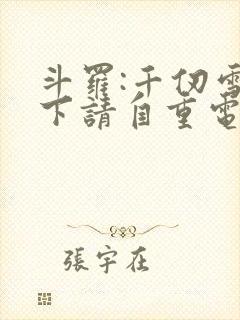 斗羅:千仞雪
下請自重電
張宇在